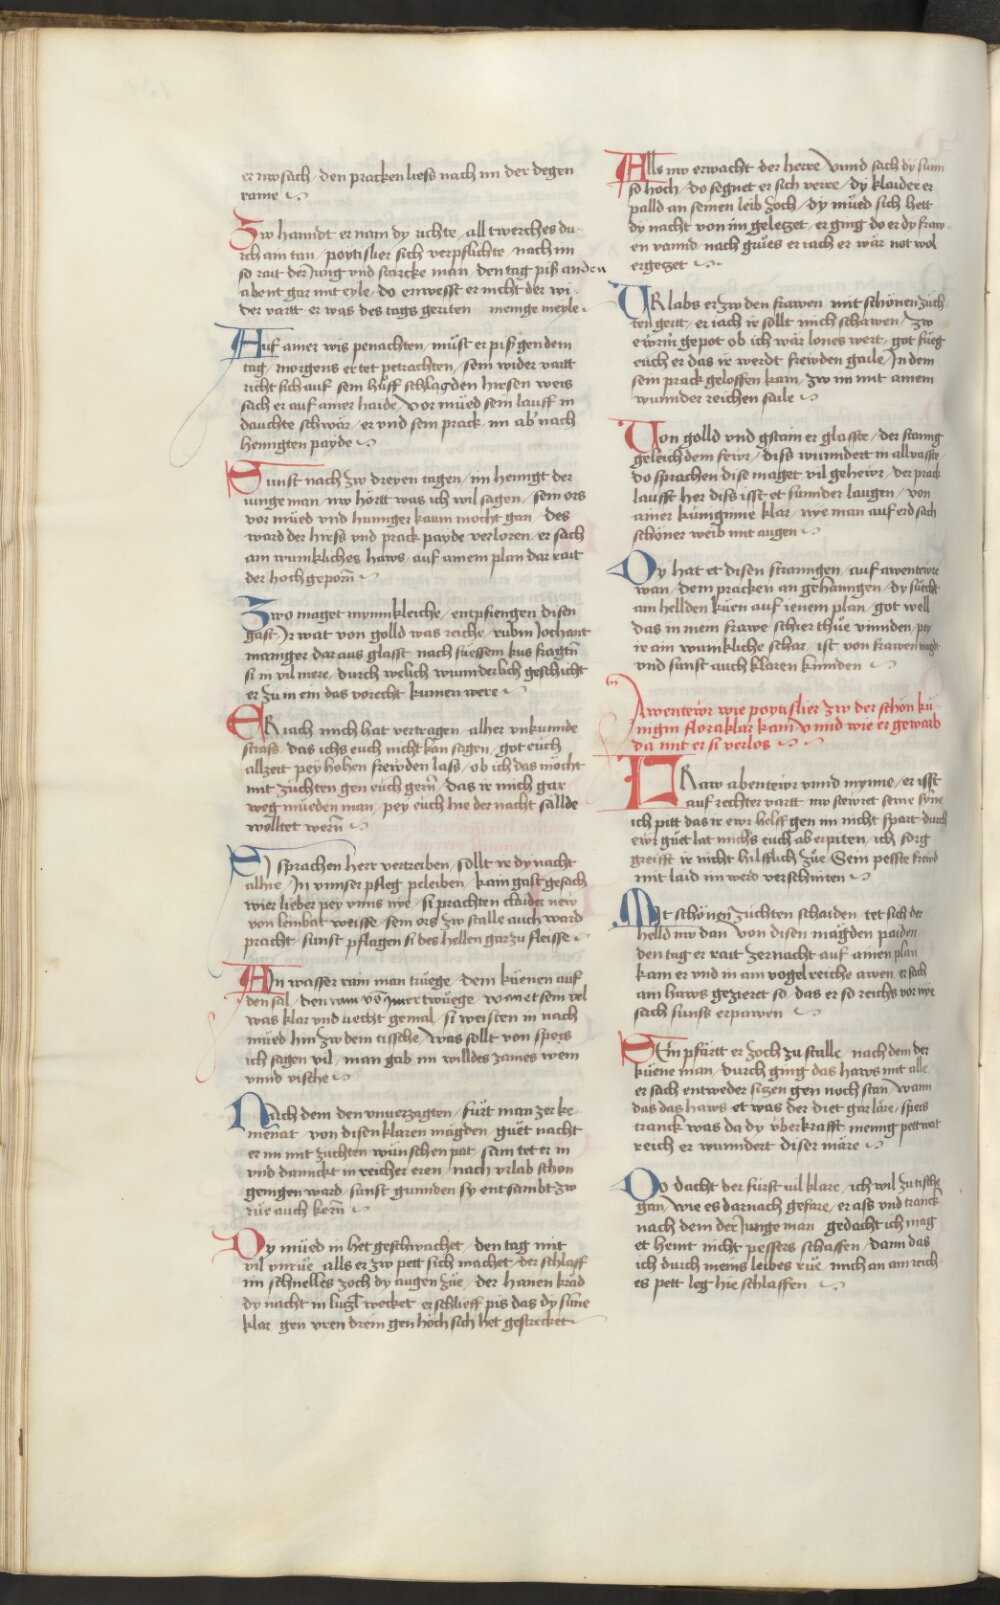 er nw sach · den pracken liess nach im der degen
rame
Zw hanndt er nam dy richte / all twerches du-
rch am tan / poytislier sich verpflichte / nach im
so rait der Jung vnd starcke man / den tag piß anden
abent gar mit eyle / do enwesst er nicht der wi-
der vartt er was des tags geriten menige meyle
Auf ainer wis penachten / müst er piß gen dem
tag / morgens er tet petrachten / sein wider vartt
richt sich auf sein hüff schlag den hirsen weis
sach er auf ainer haide / vor müed sein lauff in
dauchte schwär / er vnd sein prack im ab nach
henngten payde
Sunst nach zw dreyen tagen / im henngt der
iunge man / nw hörtt was ich wil sagen / sein ors
vor müed vnd hunnger kaum mocht gan / des
ward der hirss vnd prack payde verloren / er sach
am wunkliches haws / auf ainem plan dar rait
der hoch geporñ
Zwo maget mynnikleiche / entpfiengen disen
gast / Ir wat von golld was reiche / rubin Jochant
maniger dar aus glasst / nach süessem kus fragtñ
si in vil mere / durch welich wunnderlich geschicht
er zu in ein das vorecht kumen were
ER iach mich hat vertragen / alher vnkunnde
strass / das ichs euch nicht kan sagen / got euch
allzeit pey hohen frewden lass / ob ich das möcht
mit züchten gen euch gerñ / das ir mich gar
weg müeden man / pey euch hie der nacht sällde
wolltet werñ
SI sprachen herr vertreiben / sollt ir dy nacht
allhie / In vnnser pfleg peleiben / kain gast gesach
wier lieber pey vnns nye / si prachten claider new
von leinbat weisse / sein ors zw stalle auch ward
pracht / sunst pflagen si des hellen gar zu fleisse
AIn wasser rain man trüege / dem küenen auf
den sal / den ram vō im er twüege / wan et sein vel
was klar vnd liecht gemal / si weisten in nach
müed hin zw dem tissche / was sollt von speis
ich sagen vil / man gab im willdes zames wein
vnnd vische
NAch dem den vnuerzagten / fürt man zer ke-
menat von disen klaren mägden / guet nacht
er im mit züchten wünschen pat / sam tet er in
vnd dannckt in reicher eren / nach vrlab schon
genngen ward / sunst gunnden sy entsambt zw
rüe auch kerñ
DY müed in het geschwachet / den tag mit
vil vnrüe / alls er zw pett sich machet / der schlaff
im schnelles zoch dy augen züe / der hanen kräd
dy nacht in lützl wecket / er schlieff pis das dy sune
klar / gen vren drein gen höch sich het gestrecket
Alls nw erwacht der herre / vnnd sach dy sunn
so hoch / do segnet er sich verre / dy klaider er
palld an seinen leib zoch / dy müed sich hett
dy nacht von im geletzet / er ging do er dy fraw-
en vannd / nach grües er iach er wär not wol
ergetzet
URlabs er zw den frawen / mit schönen züch-
ten gertt / er iach ir sollt mich schawen / zw
ewrm gepot ob ich wär lones wert / got füeg
euch er das ir werdt frewden gaile / In dem
sein prack geloffen kam / zw im mit ainem
wunnder reichen saile
Von golld vnd gstain er glasste / der stranng
geleich dem fewr / diss wunndert in allvasste
do sprachen dise maget vil gehewr / der prack
laufft her diss isst et sunnder laugen / von
ainer küniginne klar / nye man auf erd sach
schöner weib mit augen
DY hat et disen stranngen / auf awentewr
wan / dem pracken an gehanngen / dy suecht
ain hellden küen auf ienem plan / got well
das in mein frawe schier thüe vinnden / pey
ir am wunnkliche schar / ist von frawen magdt
vnd sunst auch klaren kinnden
Awentewr wie poytislier zw der schön kü-
nigin floraklar kam vnnd wie er gewarb
da mit er si verlos
FRaw abentewr vnnd mynne / er isst
auf rechter vartt / nw stewret seine synne
ich pitt das ir ewr helff gen im nicht spart / durch
ewr güet lat michs euch ab erpiten / ich sorg
greifft ir nicht hilfflich züe / Sein pesste frewd
mit laid im werd verschniten
MIt schönen züchten schaiden / tet sich der
helld nw dan / von disen mägden paiden /
den tag er rait zer nacht auf ainen plan /
kam er vnd in am vogelreiche awen / er sach
am haws gezieret so / das er so reichs vor nye
sach sunst erpawen
SEin pfärtt er zoch zu stalle / nach dem der
küene man / durch ging das haws mit alle
er sach entweder sitzen gen noch stan / wann
das das haws et was der diet gar läre / speis
tranck was da dy überkrafft / menig pettwat
reich er wunndert diser märe
DO dacht der fürst vil klare / ich wil zu tische
gan / wie es darnach gefare / er ass vnd tranck
nach dem der Junge man / gedacht ich mag
et heint nicht pessers schaffen / dann das
ich durch meins leibes rüe / mich an am reich-
es pett leg hie schlaffen